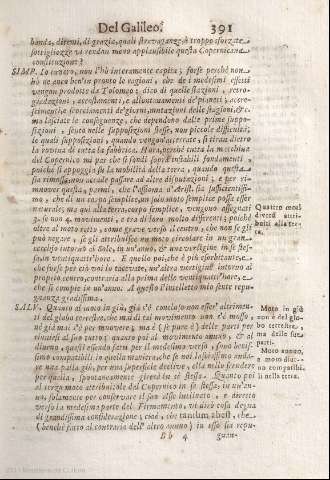 Del Galileo. 391
banda, ditemi, di grazia, quali stravaganze ò troppo sforzate
sottigliezze vi rendon meno applausibile questa Copernicana
constituzione?
SIMP. Io veramente non l'hò interamente capita; forse perchè non
hò nè anco ben'in pronto le ragioni, che de i medesimi effetti
vengon prodotte da Tolomeo; dico di quelle stazioni, retro-
gradazioni, accostamenti, e allontanamenti de' pianeti; accre-
scimenti, e scorciamenti de' giorni; mutazioni delle stagioni, &c.
ma lasciate le conseguenze, che dependono dalle prime suppo-
sizioni, sento nelle supposizioni stesse, non piccole difficultà;
le quali supposizioni, quando vengon'atterrate, si tiran dietro
la rovina di tutta la fabbrica. Hora, perchè tutta la macchina
del Copernico mi par che si fondi sopra instabili fondamenti,
poichè s'appoggia sù la mobilità della terra, quando questa
sia rimossa, non accade passare ad altre disputazioni; e per ri-
muover questa, parmi, che l'assioma d'Arist. sia sufficientissi-
mo, che di un corpo semplice, un solo moto semplice possa esser
naturale; ma quì alla terra, corpo semplice, vengono assegnati
3. se non 4. movimenti, e tra di loro molto differenti; poichè
oltre al moto retto, come grave verso il centro, che non se gli
può negare, se gli attribuisce un moto circolare in un gran-
cerchio intorno al Sole, in un'anno, & una vertigine in se stes-
sa in ventiquattr'hore. E quello poi, che è più esorbitante, &
che forse per ciò voi lo tacevate, un'altra vertigine intorno al
proprio centro, contraria alla prima delle ventiquattr'hore, e
che si compie in un'anno. A questo l'intelletto mio sente repu-
gnanza grandissima.
Quattro moti
diversi attri-
buiti alla ter-
ra.
SALV. Quanto al moto in giù, già s'è concluso non esser' altrimen-
ti del globo terrestre, che mai di tal movimento non s'è mosso,
nè già mai è per muoversi; ma è (se pure è) delle parti per
riunirsi al suo tutto; quanto poi al movimento annuo, & al
diurno, questi essendo fatti per il medesimo verso, sono benis-
simo compatibili in quella maniera, che se noi lasciassimo andare
una palla giù, per una superficie declive, ella nello scendere
per quella, spontaneamente girerebbe in se stessa. Quanto poi
al terzo moto attribuitole dal Copernico in se stessa, in un'an-
no, solamente per conservare il suo asse inclinato, e diretto
verso la medesima parte del Firmamento, vi dirò cosa degna
di grandissima considerazione; cioè, che tantum abest, che
(benchè fatto al contrario dell'altro annuo) in esso sia repu-
Moto in giù
non è del glo-
bo terrestre,
ma delle sue
parti.
Moto annuo,
e moto diur-
no compatibi-
li nella terra.
Bb 4 gnan-